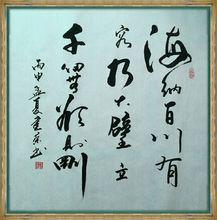 海纳百川有
容乃大壁立
千仞無欲则刚
丙申孟夏书